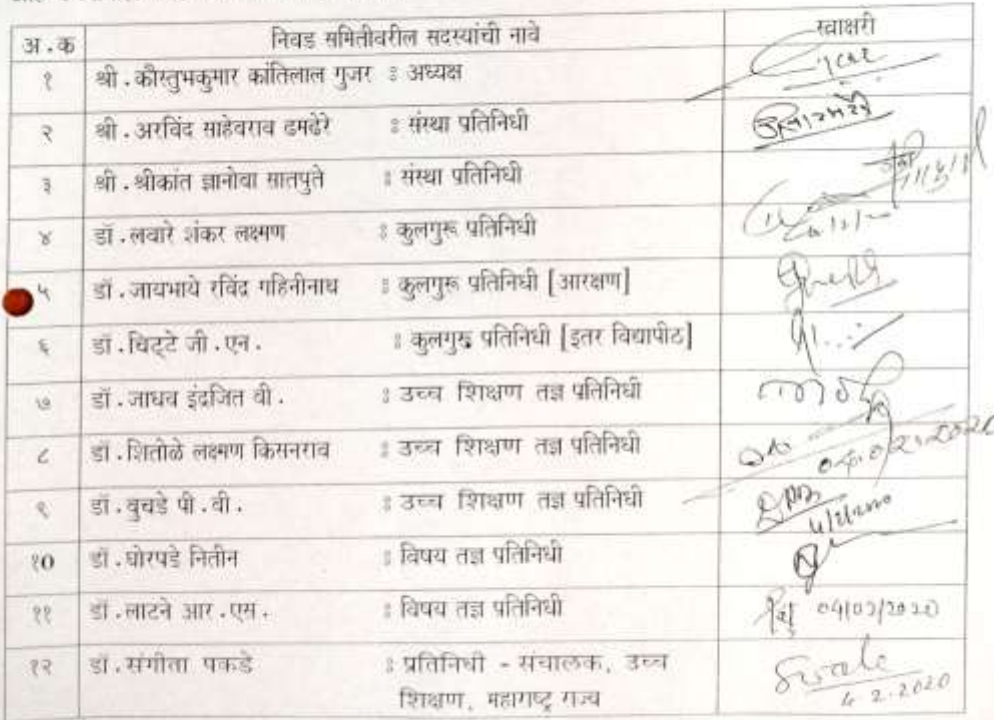 अ.क निवड समितीवरील सदस्यांची नावे स्वाक्षरी
१ श्री.कौस्तुभकुमार कांतिलाल गुजर : अध्यक्ष
२ श्री.अरविंद साहेवराव ढमढेरे : संस्था प्रतिनिधी
३ श्री.श्रीकांत ज्ञानोवा सातपुते : संस्था प्रतिनिधी
४ डॉ.लवारे शंकर लक्ष्मण : कुलगुरू प्रतिनिधी
५ डॉ.जायभाये रविंद्र गहिनीनाथ : कुलगुरू प्रतिनिधी [आरक्षण]
६ डॉ.चिट्टे जी.एन. : कुलगुरू प्रतिनिधी [इतर विद्यापीठ]
७ डॉ.जाधव इंद्रजित वी. : उच्च शिक्षण तज्ञ प्रतिनिधी
८ डॉ.शितोळे लक्ष्मण किसनराव : उच्च शिक्षण तज्ञ प्रतिनिधी
९ डॉ.वुचडे पी.वी. : उच्च शिक्षण तज्ञ प्रतिनिधी
१0 डॉ.घोरपडे नितीन : विषय तज्ञ प्रतिनिधी
११ डॉ.लाटने आर.एस. : विषय तज्ञ प्रतिनिधी 04/02/2020
१२ डॉ.संगीता पकडे : प्रतिनिधी - संचालक, उच्च
शिक्षण, महाराष्ट्र राज्य 4.2.2020